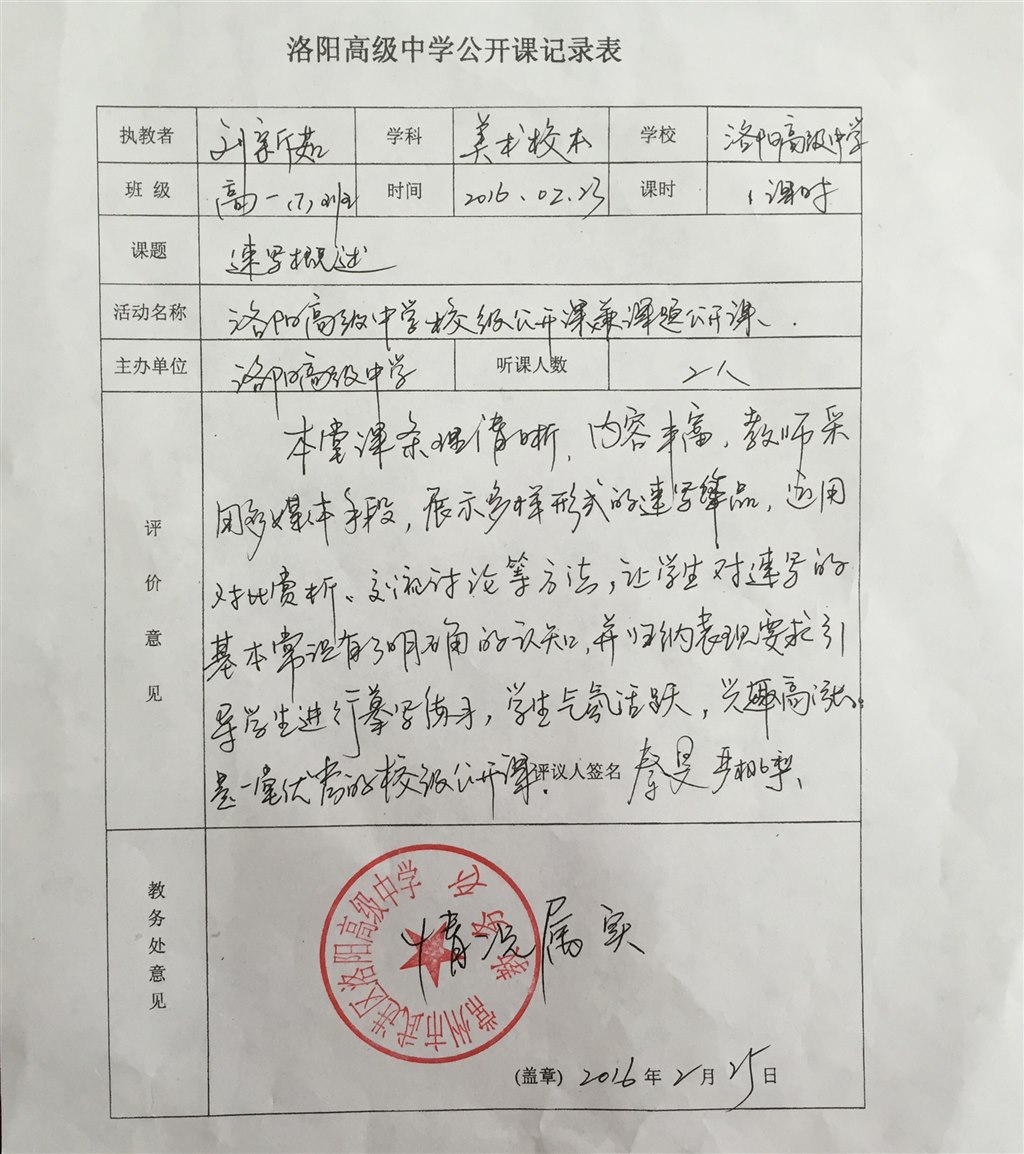 洛阳高级中学公开课记录表
执教者 刘新茹 学科 美术校本 学校 洛阳高级中学
班 级 高一(7)班 时间 2016.02.23 课时 1课时
课题 速写概述
活动名称 洛阳高级中学校级公开课兼课题公开课.
主办单位 洛阳高级中学 听课人数 2人
评价意见
本堂课条理清晰,内容丰富,教师采
用多媒体手段,展示多样形式的速写作品,运用
对比赏析、交流讨论等方法,让学生对速写的
基本常识有了明确的认知,并归纳表现要求引
导学生进行摹写练习,学生气氛活跃,兴趣高涨。
是一堂优秀的校级公开课. 评议人签名 秦昊
教务处意见
情况属实
常州市武进区洛阳高级中学
教务处
(盖章) 2016年2月25日